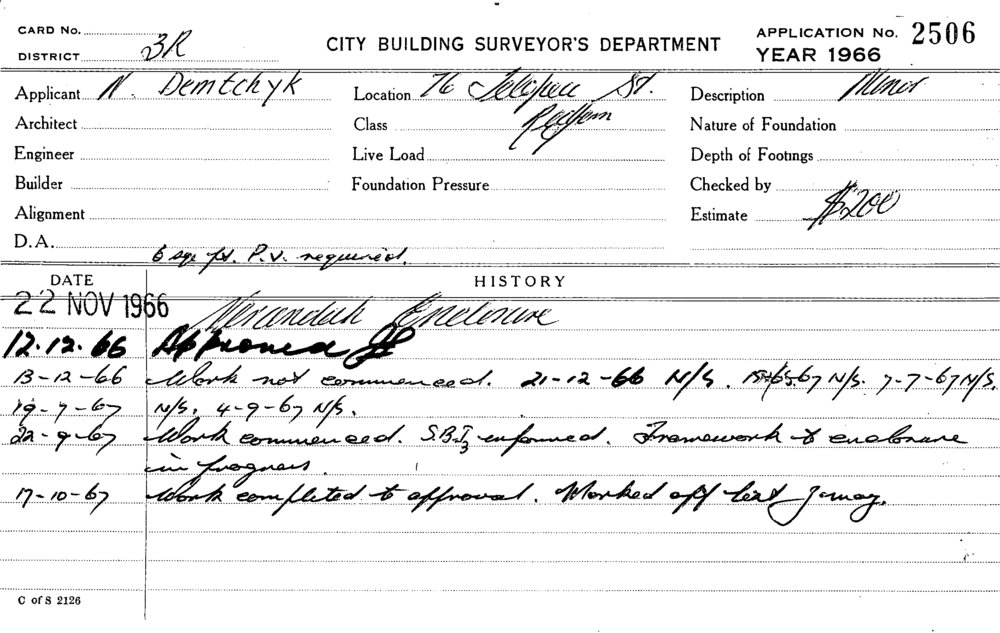 CARD No.
DISTRICT 3R
CITY BUILDING SURVEYOR'S DEPARTMENT
APPLICATION No. 2506
YEAR 1966
Applicant N. Demtchyk
Location 76 St.
Redfern
Description Minor
Architect
Class
Nature of Foundation
Engineer
Live Load
Depth of Footings
Builder
Foundation Pressure
Checked by
Alignment
Estimate $200
D.A.
6 sq. ft. P.V. required.
DATE
HISTORY
22 NOV 1966 Verandah Enclosure
12.12.66 Approved
13-12-66 Work not commenced. 21-12-66 N/S. 67 N/S. 7-7-67 N/S.
19-7-67 N/S. 4-9-67 N/S.
22-9-67 Work commenced. S.B.I. informed. Framework to enclosure
in progress.
17-10-67 Work completed to approval. Marked off list
C of S 2126